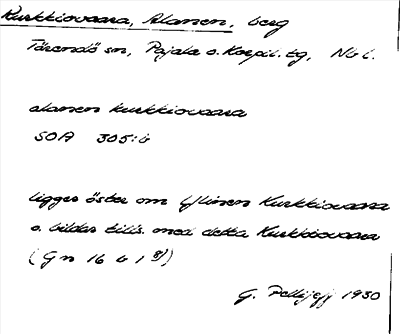 Kurkkiovaara, Alanen, berg
Tärendö sn, Pajala o. Korpil. tg, Nb l.
alanen kurkkiovaara
SOA 305:6
ligger öster om Ylinen Kurkkiovaara
o. bildar tills. med detta Kurkkiovaara
(Gn 16 b 1 8))
G. Pellijeff 1930